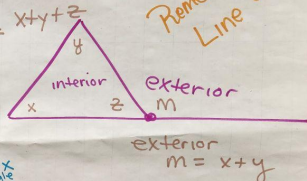 = x+y+z
Line
y
interior
exterior
x
z
m
exterior
m = x+y
x